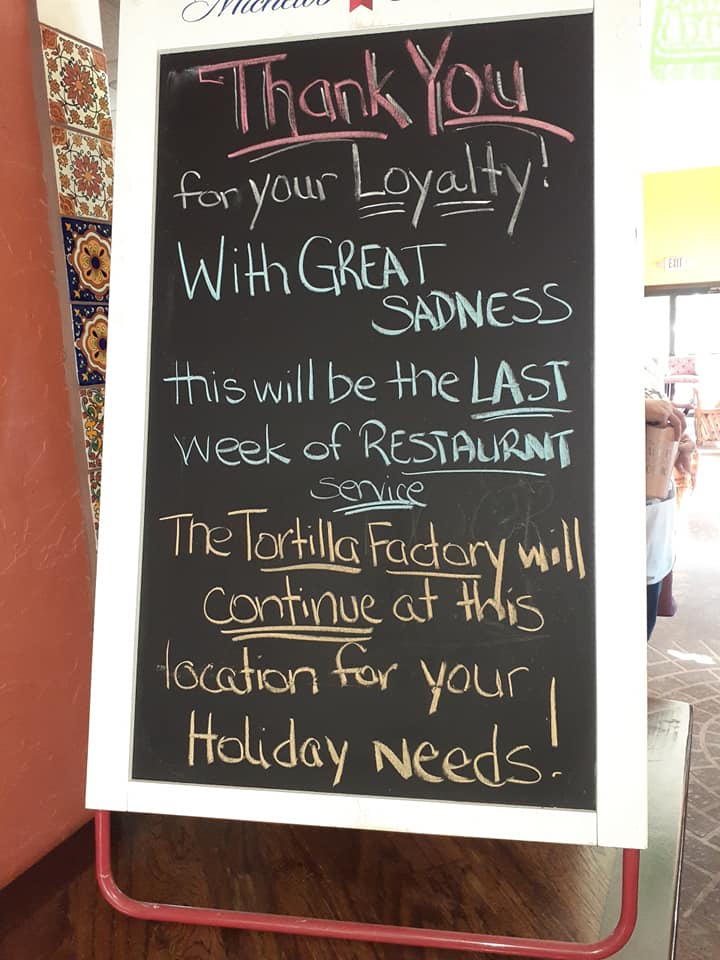 Thank You
for your Loyalty!
With GREAT
SADNESS
this will be the LAST
week of RESTAURNT
Service
The Tortilla Factory will
continue at this
location for your
Holiday Needs!
EXIT